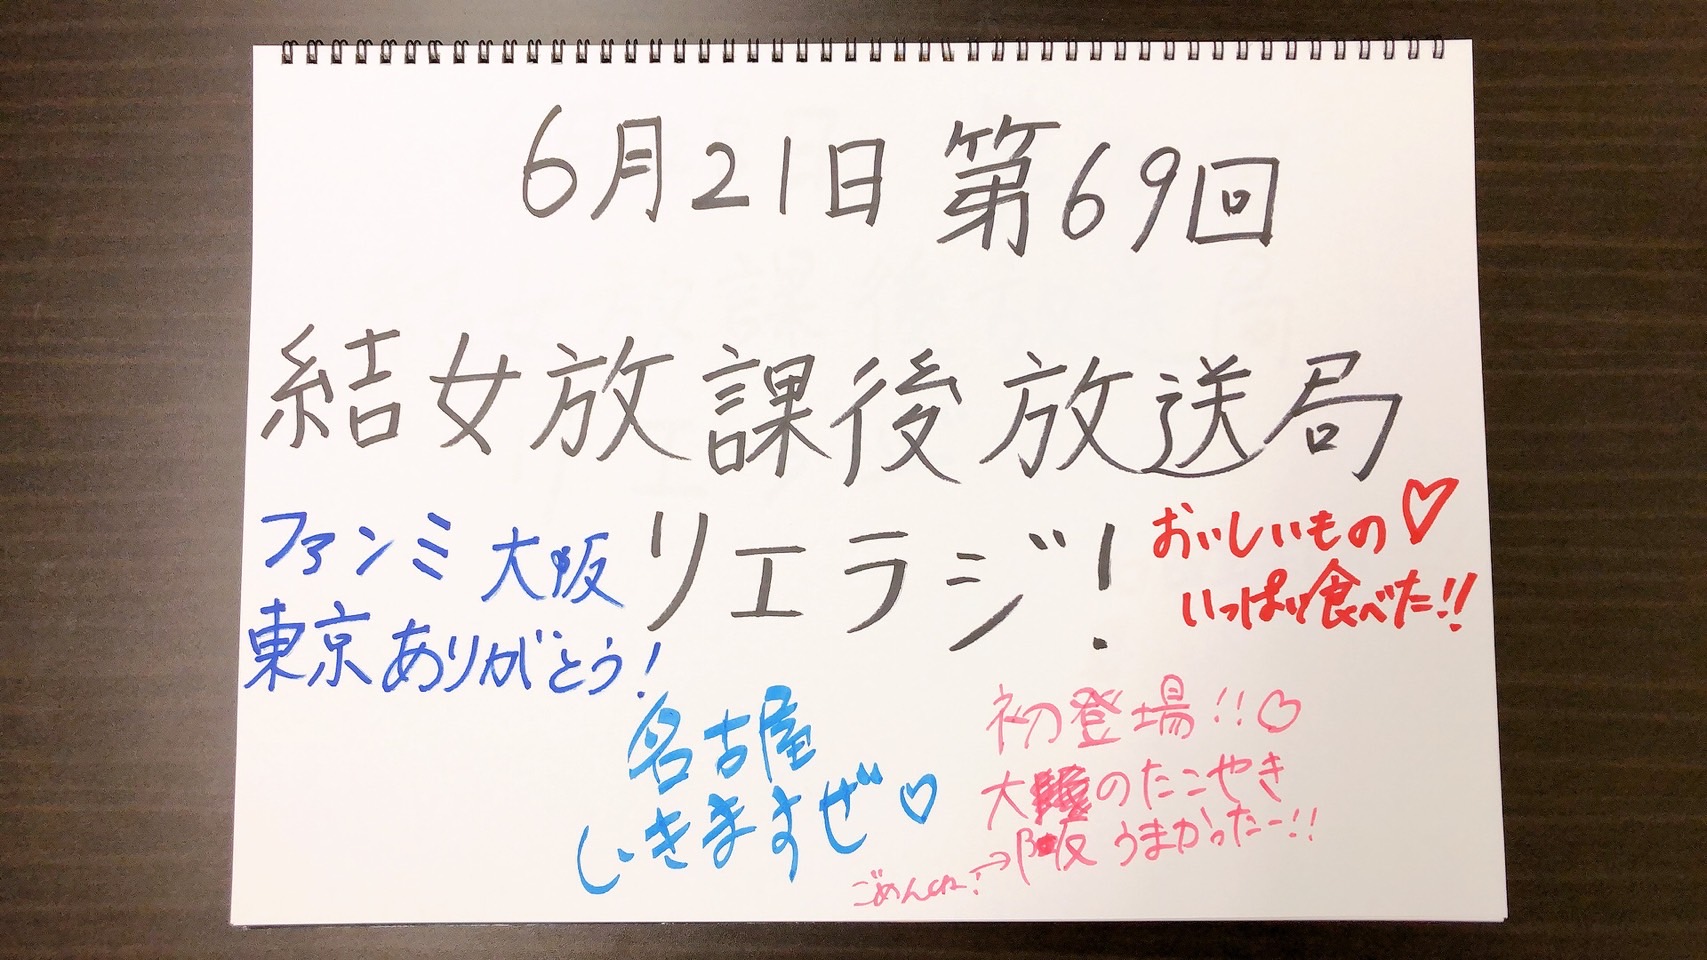 6月21日 第69回
結女放課後放送局
リエラジ!
ファンミ 大阪
東京 ありがとう!
おいしいもの♡
いっぱい食べた!!
名古屋
いきますぜ♡
初登場!!♡
大のたこやき
→阪 うまかったー!!
ごめんね!